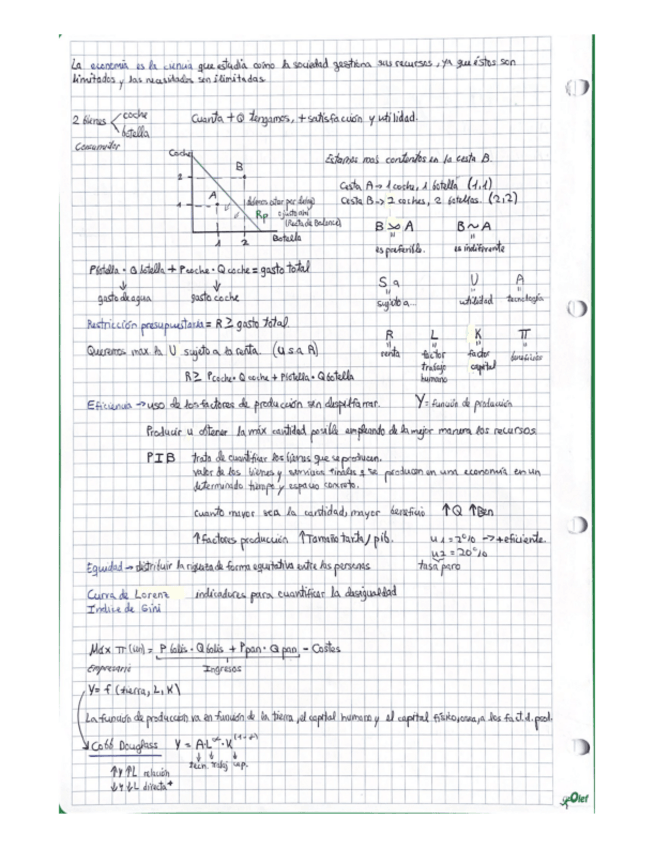 La economía es la ciencia que estudia como la sociedad gestiona sus recursos, ya que éstos son
limitados y las necesidades son ilimitadas.
2 Bienes coche
botella
Consumidor
Cuanta + Q tengamos, + satisfacción y utilidad.
Coche
B
2
A
1
1 2
Botella
Rp
(Recta de Balance)
Estamos mas contentos en la cesta B.
Cesta A → 1 coche, 1 botella (1,1)
Cesta B → 2 coches, 2 botellas. (2,2)
B ≻ A B ~ A
es preferible. es indiferente
Pbotella · Q botella + Pcoche · Q coche = gasto total
gasto de agua gasto coche
S a U A
sujeto a... utilidad tecnología
Restricción presupuestaria = R ≥ gasto total.
R L K π
renta factor trabajo humano factor capital beneficios
Queremos max. la U sujeto a la renta. (U s.a R)
R ≥ Pcoche · Q coche + Pbotella · Q botella
Eficiencia → uso de los factores de producción sin despilfarrar. Y = función de producción
Producir u obtener la máx cantidad posible empleando de la mejor manera los recursos
PIB trata de cuantificar los bienes que se producen.
valor de los bienes y servicios finales q se producen en una economía en un
determinado tiempo y espacio concreto.
cuanto mayor sea la cantidad, mayor beneficio ↑Q ↑Ben
↑ factores producción ↑ Tamaño tarta / pib. u1 = 2% → + eficiente.
u2 = 20%
tasa paro
Equidad → distribuir la riqueza de forma equitativa entre las personas
Curva de Lorenz indicadores para cuantificar la desigualdad
Indice de Gini
Max π = P bolis · Q bolis + P pan · Q pan - Costes
Empresario Ingresos
Y = f (tierra, L, K)
La función de producción va en función de la tierra, el capital humano y el capital físico, a los fact. d. prod.
Cobb Douglass Y = A·L^α · K^(1-α)
tecn. trabaj cap.
↑Y ↑L relación
↓Y ↓L directa +
Oxford